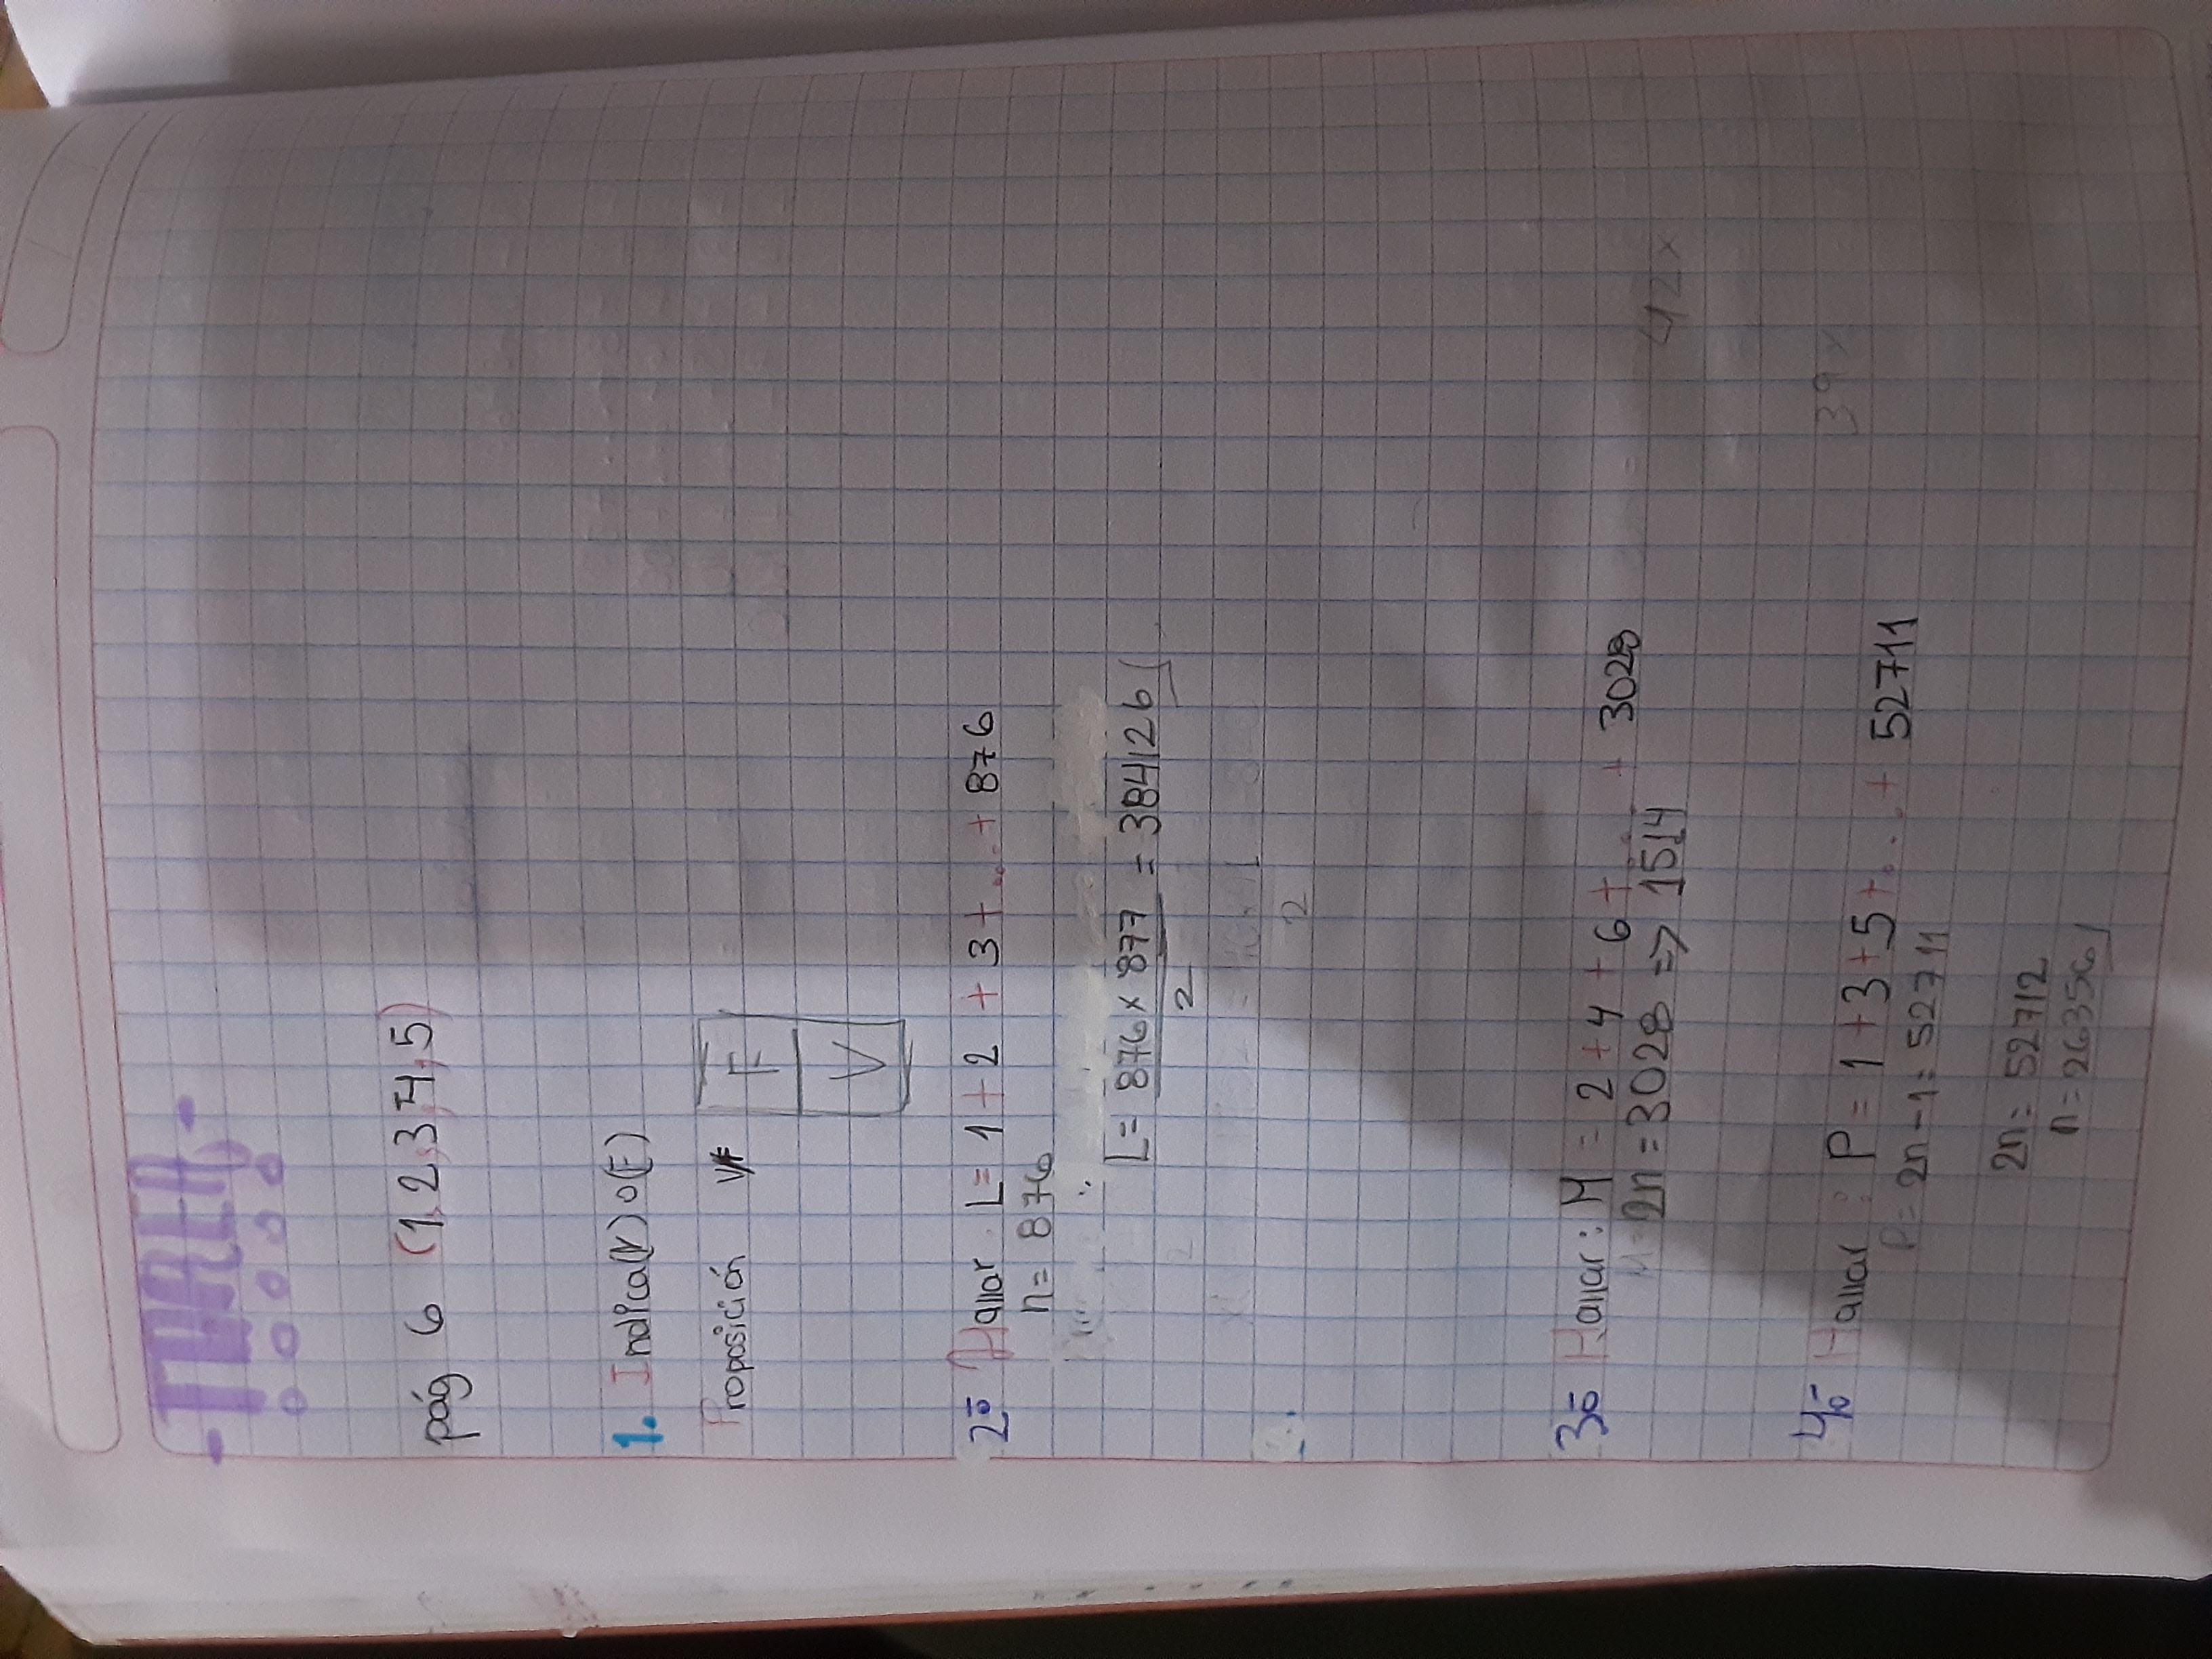 -TAREA-
pág 6 (1,2,3,4,5)
1. Indica(V) o(F)
Proposición V/F
F
V
2º Hallar. L= 1 + 2 + 3 + ... + 876
n= 876
L= 876 x 877 = 384126
2
2
3º Hallar: M = 2 + 4 + 6 + ... + 3028
2n = 3028 => 1514
42x
4º Hallar : P = 1 + 3 + 5 + ... + 52711
39x
P= 2n - 1 = 52711
2n = 52712
n = 26356